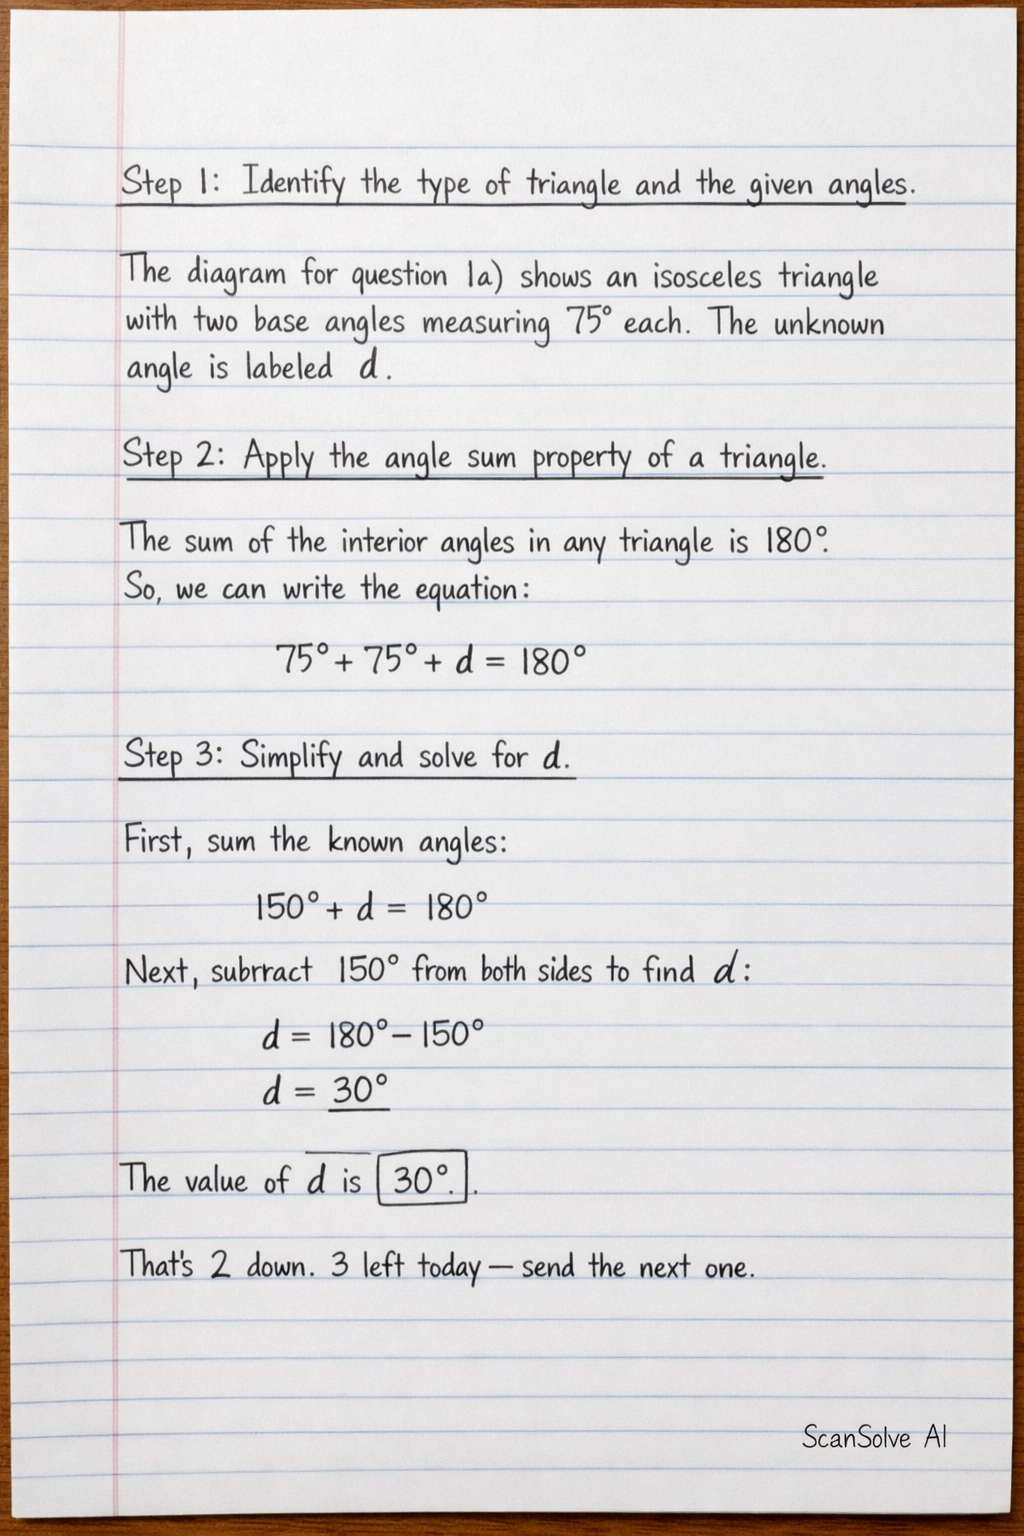 Step 1: Identify the type of triangle and the given angles.
The diagram for question 1a) shows an isosceles triangle
with two base angles measuring 75° each. The unknown
angle is labeled d.
Step 2: Apply the angle sum property of a triangle.
The sum of the interior angles in any triangle is 180°.
So, we can write the equation:
75° + 75° + d = 180°
Step 3: Simplify and solve for d.
First, sum the known angles:
150° + d = 180°
Next, subrract 150° from both sides to find d:
d = 180° – 150°
d = 30°
The value of d is 30°..
That's 2 down. 3 left today — send the next one.
ScanSolve AI